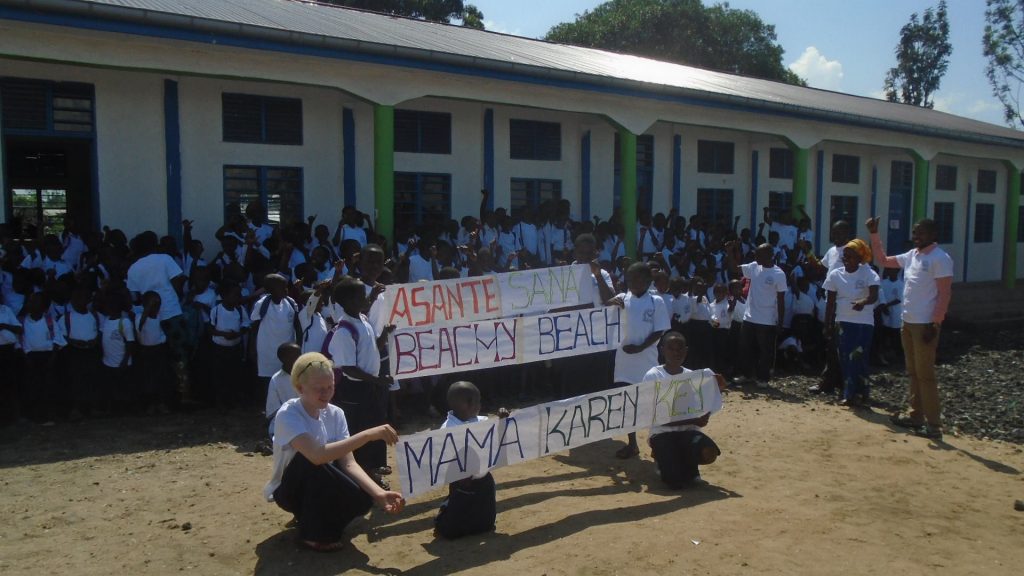 ASANTE SANA
BEACMY BEACH
MAMA KAREN KEY